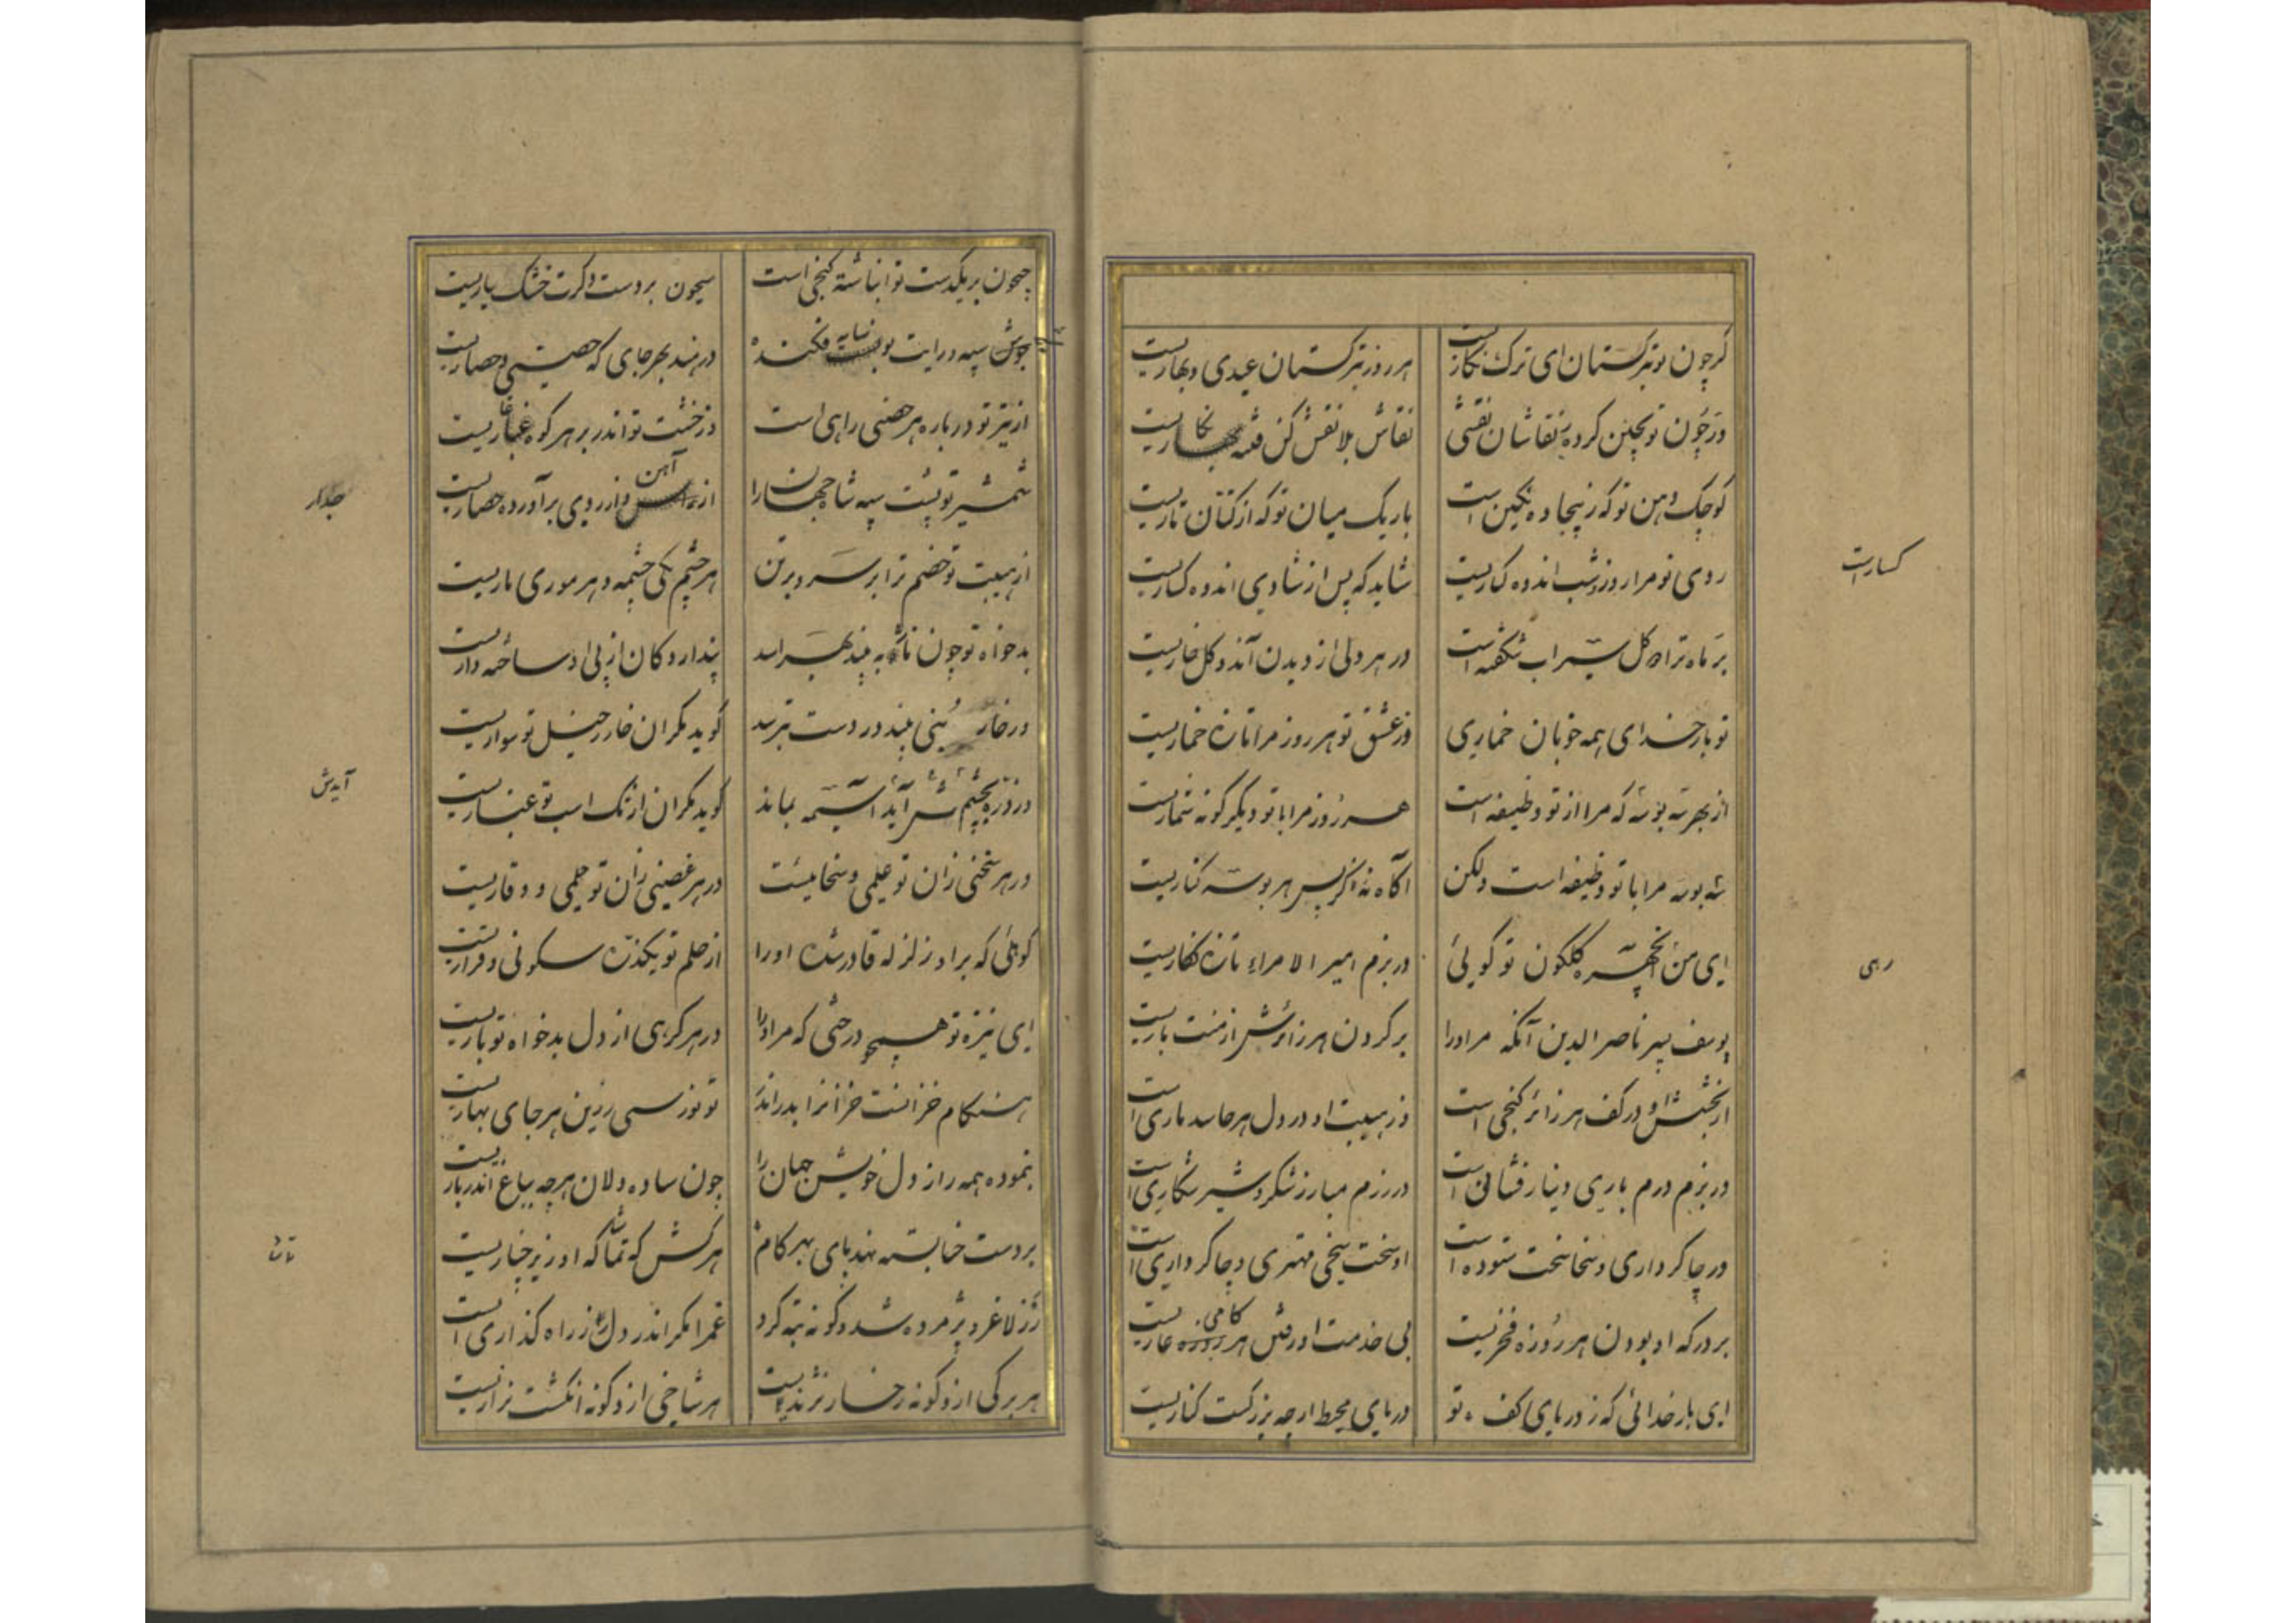 گرچون تو بترکستان ای ترک نگاریست
هر روز بترکستان عیدی و بهاریست
ورچون تو بچین کرده ز نقاشان نقشی
نقاش بلا نقش کن فتنه نگاریست
کوچک دهن تو که ز بیجاده نگین است
باریک میان تو که از کتان تاریست
روی تو مرا روز و شب انده گساریست
شاید که پس از شادی انده گساریست
بر ماه ترا دو گل سیراب شگفته است
در هر دلی از دیدن آن دو گل خاریست
تو بار خدای همه خوبان خماری
وز عشق تو هر روز مرا تازه خماریست
از بهر سه بوسه که مرا از تو وظیفه است
هر روز مرا با تو دیگر گونه شماریست
سه بوسه مرا با تو وظیفه است ولکن
آگاه نه اگر پس هر بوسه کناریست
ای من آن چهره گلگون تو گویی
در بزم امیر الامرا تازه نگاریست
یوسف پسر ناصر الدین آنکه مر او را
بر گردن هر زائرش از منت باریست
از بخشش او در کف هر زائر گنجی است
وز هیبت او در دل هر حاسد ماری است
در بزم درم باری و دینار فشانی است
در رزم مبارز شکر و شیر شکاری است
در چاکر داری و سخا سخت ستوده است
او سخت سخی مهتری و چاکر داری است
بر درگه او بودن هر روزه فخریست
بی خدمت او رفتن هر گامی عاریست
ای بار خدائی که ز دریای کف تو
دریای محیط ارچه بزرگست کناریست
جیحون بر یکدست تو انباشته گنجی است
سیحون بر دست دگرت خشک بیاریست
جوش سپه و رایت تو سایه فکنده
در هند بهر جای که حصنی و حصاریست
از تیر تو در باره هر حصنی راهی است
وز خشت تو اندر بر هر کوه غاریست
شمشیر تو پشت سپه شاه جهان را
از آهن و از روی برآورده حصاریست
از هیبت تو خصم ترا بر سر و بر تن
هر چشم یکی چشمه و هر موری ماریست
بدخواه تو چون ناژ به بیند بهراسد
پندارد کان از پی او ساخته داریست
ور خار بنی بیند در دست بترسد
گوید مگر آن خار ز خیل تو سواریست
ور ذره بچشمش آید آسیمه بماند
گوید مگر آن از تک اسب تو غباریست
در هر سخنی زان تو علمی و سخاییست
در هر غضبی زان تو حلمی و وقاریست
کوهی که بر او زلزله قادر شده او را
از حلم تو یکذره سکونی و قراریست
ای نیزه تو همچو درختی که مر او را
در هر گرهی از دل بدخواه تو باریست
هنگام خزانست خزانرا بدر اندر
نو نو ز بسی زرین هر جای بهاریست
بنموده همه راز دل خویش جهان را
چون ساده دلان هر چه بباغ اندر باریست
بر دست حنا بسته نهد پای بهر گام
هر کس که تماشاگه او زیر چناریست
رز لاغر و پژمرده شد و گونه تبه کرد
غم را مگر اندر دل رز راه گذاری است
هر برگی از و گونه رخسار نژندیست
هر شاخی از و گونه انگشت نزاریست
گساریست
رهی
جدار
آیدش